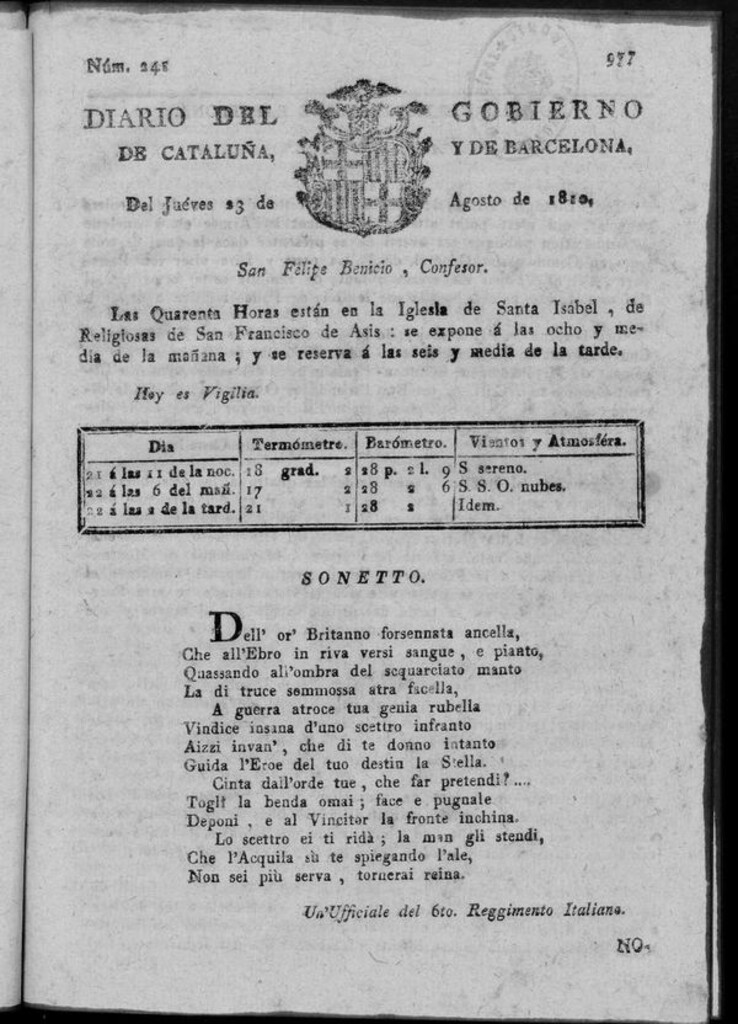 Núm. 245
977
DIARIO DEL GOBIERNO
DE CATALUÑA, Y DE BARCELONA,
Del Juéves 23 de Agosto de 1810,
San Felipe Benicio , Confesor.
Las Quarenta Horas están en la Iglesia de Santa Isabel , de
Religiosas de San Francisco de Asis : se expone á las ocho y me-
dia de la mañana ; y se reserva á las seis y media de la tarde.
Hoy es Vigilia.
Dia Termómetro. Barómetro. Vientos y Atmosféra.
21 á las 11 de la noc. 18 grad. 2 28 p. 2 l. 9 S sereno.
22 á las 6 del mañ. 17 2 28 2 6 S. S. O. nubes.
22 á las 2 de la tard. 21 1 28 2 Idem.
SONETTO.
Dell' or' Britanno forsennata ancella,
Che all'Ebro in riva versi sangue , e pianto,
Quassando all'ombra del squarciato manto
La di truce sommossa atra facella,
A guerra atroce tua genia rubella
Vindice insana d'uno scettro infranto
Aizzi invan' , che di te donno intanto
Guida l'Eroe del tuo destin la Stella.
Cinta dall'orde tue , che far pretendi?....
Togli la benda omai ; face e pugnale
Deponi , e al Vincitor la fronte inchina.
Lo scettro ei ti ridà ; la man gli stendi,
Che l'Acquila sù te spiegando l'ale,
Non sei più serva , tornerai reina.
Un'Ufficiale del 6to. Reggimento Italiano.
NO-